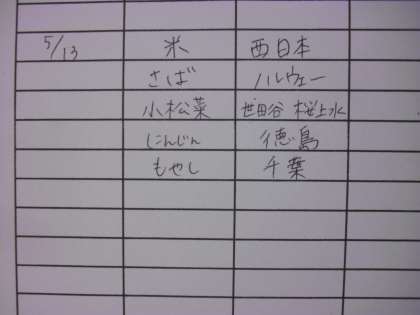 5/13 米 西日本
さば ノルウェー
小松菜 世田谷 桜上水
にんじん 徳島
もやし 千葉